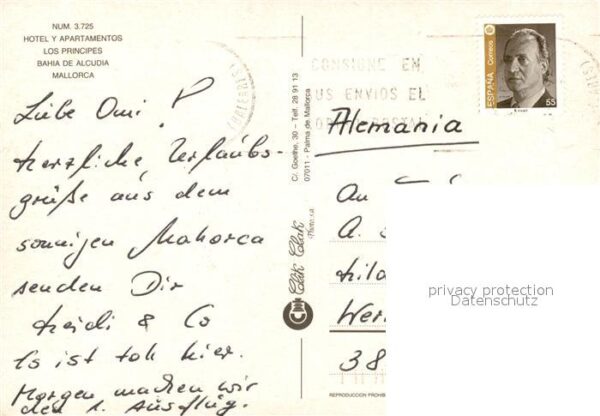 NUM. 3.725
HOTEL Y APARTAMENTOS
LOS PRINCIPES
BAHIA DE ALCUDIA
MALLORCA
Liebe Omi!
Herzliche Urlaubs-
grüße aus dem
sonnigen Mallorca
senden Dir
Heidi & Co
Es ist toll hier.
Morgen machen wir
den 1. Ausflug.
C/. Goethe, 30 - Telf. 28 91 13
07011 - Palma de Mallorca
Clak Clak
CONSIGNE EN
SUS ENVIOS EL
POSTAL
ESPAÑA Correos
55
Alemania
An
A.
Hila
Wer
38
privacy protection
Datenschutz
REPRODUCCION PROHIB